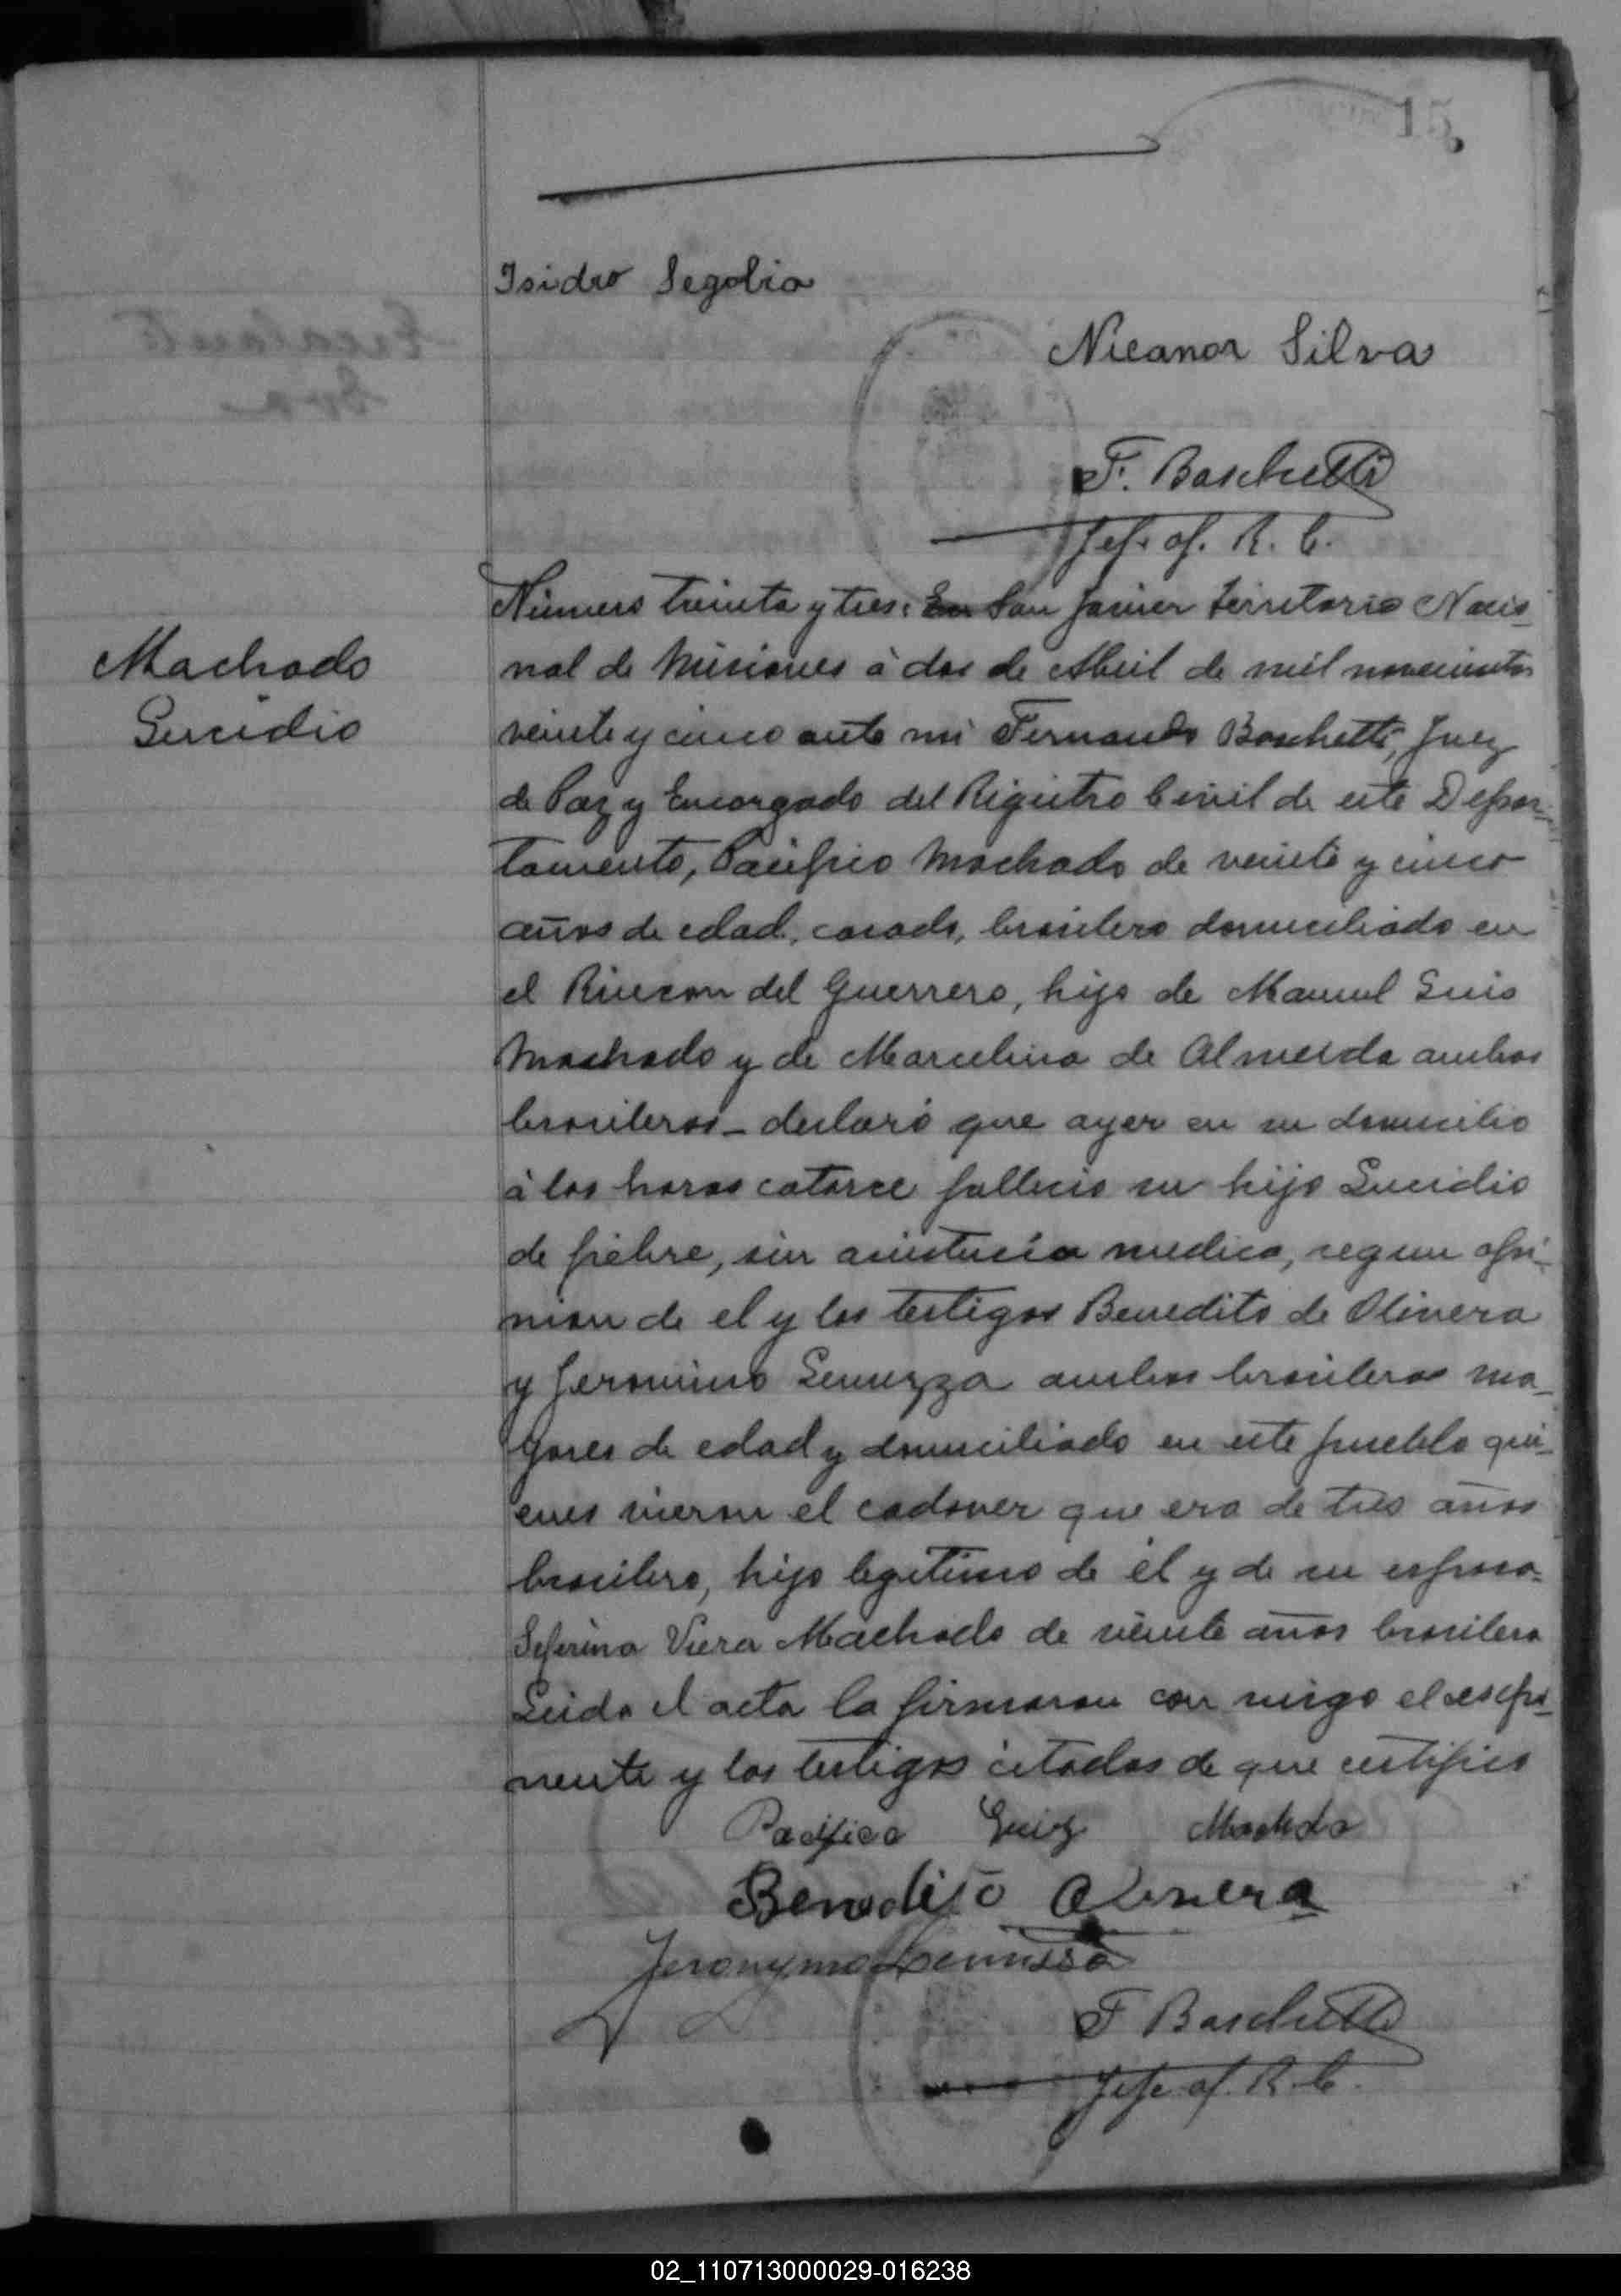 15
Isidro Segobia
Nicanor Silva
F. Boschetti
Jefe of. R. C.
Machado
Lucidio
Número treinta y tres: En San Javier territorio Nacio
nal de Misiones à dos de Abril de mil novecientos
veinte y cinco ante mi Fernando Boschetti, Juez
de Paz y Encargado del Registro Civil de este Depar-
tamento, Pacifico Machado de veinte y cinco
años de edad, casado, brasilero domiciliado en
el Rincon del Guerrero, hijo de Manuel Luis
Machado y de Marcelina de Almeida ambos
brasileros - declaró que ayer en su domicilio
à las horas catorce fallecio su hijo Lucidio
de fiebre, sin asistencia medica, segun opi-
nion de el y los testigos Benedito de Olivera
y Jeronimo Lemuzza ambos brasileros ma-
yores de edad y domiciliado en este pueblo qui-
enes vieron el cadaver que era de tres años
brasilero, hijo legitimo de él y de su esposa
Seferina Viera Machado de veinte años brasilera
Leida el acta la firmaron con migo el expo-
nente y los testigos citados de que certifico
Pacifico Luiz Machado
Benedito Olivera
Jeronymo
F Boschetti
Jefe of. R. C.
02_110713000029-016238